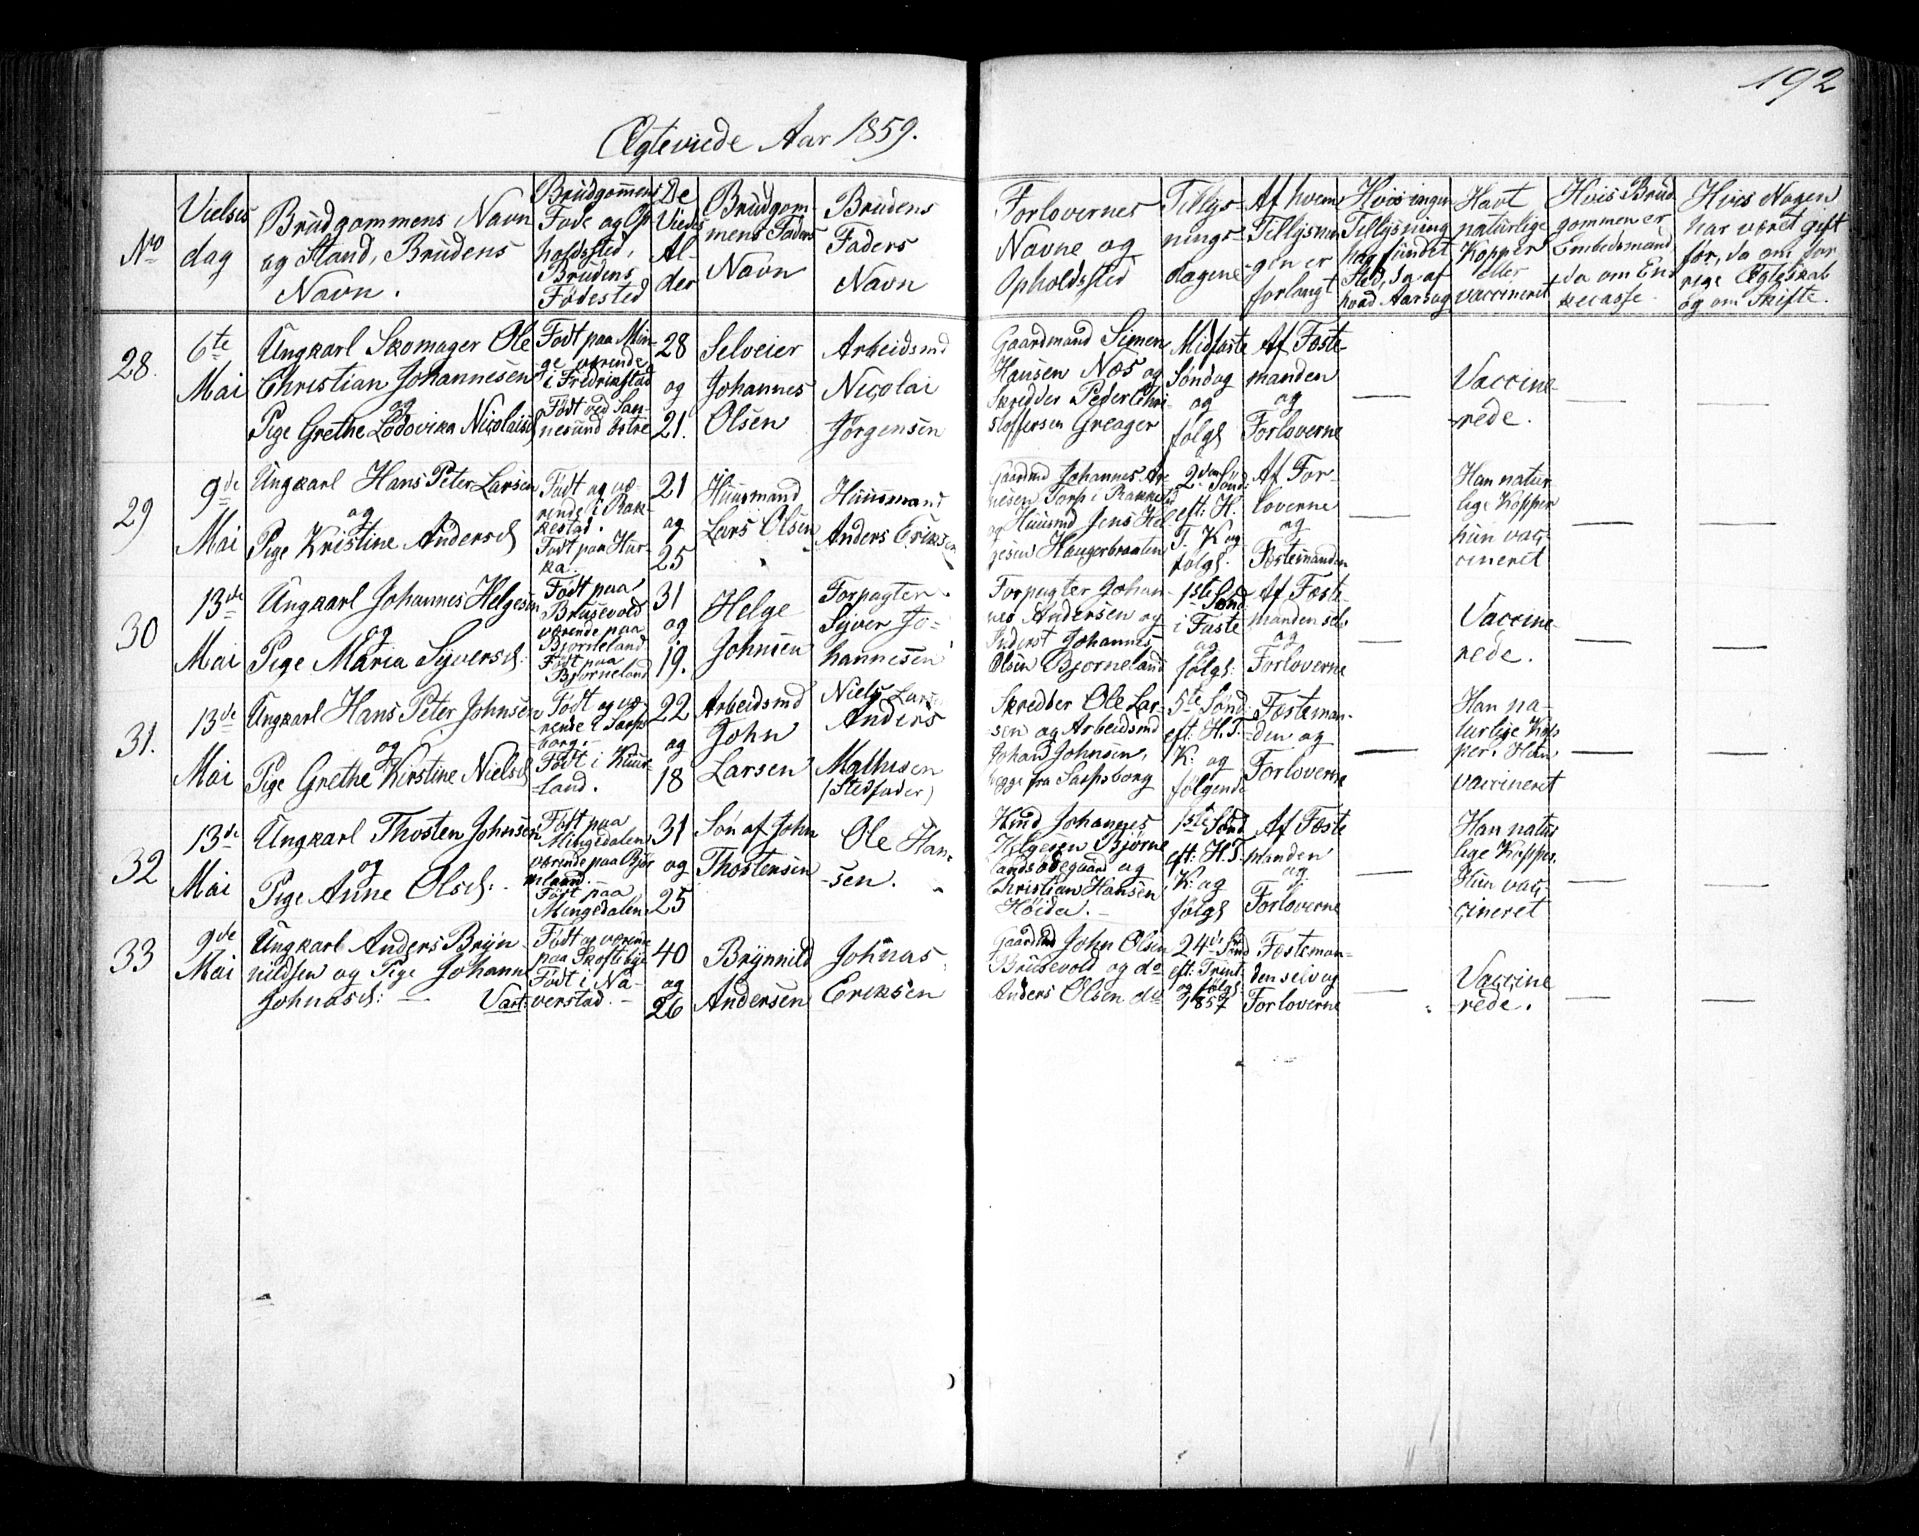 192
Ægteviede Aar 1859.
No
Vielses
dag
Brudgommens Navn
og Stand, Brudens
Navn.
Brudgommens
Føde og Op
holdssted,
Brudens
Fødested
De
Viedes
Al-
der
Brudgom-
mens Faders
Navn
Brudens
Faders
Navn
Forlovernes
Navne og
Opholdssted
Tillys-
nings-
dagene
Af hvem
Tillysnin
-gen er
forlangt
Hvis ingen
Tillysning
har fundet
Sted, da af
hvad Aarsag
Havt
naturlige
Kopper
eller
vaccineret
Hvis Brud
gommen er
Embedsmand
da om En
kecasse.
Hvis Nogen
har været gift
før, da om for
rige Ægteskab
og om Skifte.
28.
6te
Mai
Ungkarl Skomager Ole
Christian Johannesen
og
Pige Grethe Lodovika Nicolaisd
Født paa Min-
ge værende
i Fredrikstad
Født ved San-
nesund østre
28
og
21.
Selveier
Johannes
Olsen
Arbeidsmd
Nicolai
Jørgensen
Gaardmand Simen
Hansen Næs og
Skredder Peder Chri-
stoffersen Greager
Midfaste
Søndag
og
følgd
Af Fæste-
manden
og
Forloverne
—
Vaccine
-rede.
—
—
29
9de
Mai
Ungkarl Hans Peter Larsen
og
Pige Kristine Andersd
Født og væ-
rende i Rak-
kestad.
Født paa Har-
ka.
21
og
25
Huusmand
Lars Olsen
Huusmand
Anders Eriksen
Gaardmd Johannes
Torp i Rakkestd
og Huusmd Jens Hel
gesen Haugerbraaten
2den Sønd:
eft. H.
T. K og
følgd.
Af For-
loverne
og
Fæstemanden
—
Han natur
lige Kopper
hun vac-
cineret
—
—
30
13de
Mai
Ungkarl Johannes Helgesen
og
Pige Maria Syversd.
Født paa
Brusevold
værende paa
Bjørneland
Født paa
Bjørneland
31
og
19.
Helge
Johnsen
Forpagter
Syver Jo-
hannesen
Forpagter Johan-
nes Andersen og
Inderst Johannes
Olsen Bjørneland
1ste Sønd
i Faste
og
følgd:
Af Fæste-
manden selv
og
Forloverne
—
Vaccine-
rede.
—
—
31.
13de
Mai
Ungkarl Hans Peter Johnsen
og
Pige Grethe Kirstine Nielsd
Født og væ-
rende i Sarps
borg.
Født i Kuur-
land.
22
og
18
Arbeidsmd
John
Larsen
Niels Larsen
Anders
Mathisen
(Stedfader)
Skredder Ole Lar-
sen og Arbeidsmd
Johan Johnsen,
begge fra Sarpsborg
5te Sønd
eft: H.T.
K. og
følgende
Fæsteman-
den og
Forloverne
—
Han na-
turlige Kop
per. Hun
vaccineret
—
—
32
13de
Mai
Ungkarl Thosten Johnsen
og
Pige Anne Olsd.
Født paa
Mingedalen
værende paa Bjør
neland.
Født paa
Mingedalen
31
og
25
Søn af John
Thostensen
Ole Han-
-sen.
Hmd Johannes
Helgesen Bjørne
landsødegaard og
Christian Hansen
Høida.
1ste Sønd
eft: H.T.
K. og
følgd
Af Fæste
manden
og
Forloverne
—
Han natur
lige Kopper.
Hun vac-
cineret
—
—
33
9de
Mai
Ungkarl Anders Bryn-
nildsen og Pige Johanne
Johnasd: —
Vart.
Født og værende
paa Skoftebye
Født i Na-
verstad.
40
og
26
Brynnild
Andersen
Johnas
Eriksen
Gaardmd John Olsen
Brusevold og do
Anders Olsen do
24de Sønd
eft: Trinit
og følgd
1857
Fæsteman-
den selv og
Forloverne
—
Vaccine
rede.
—
—